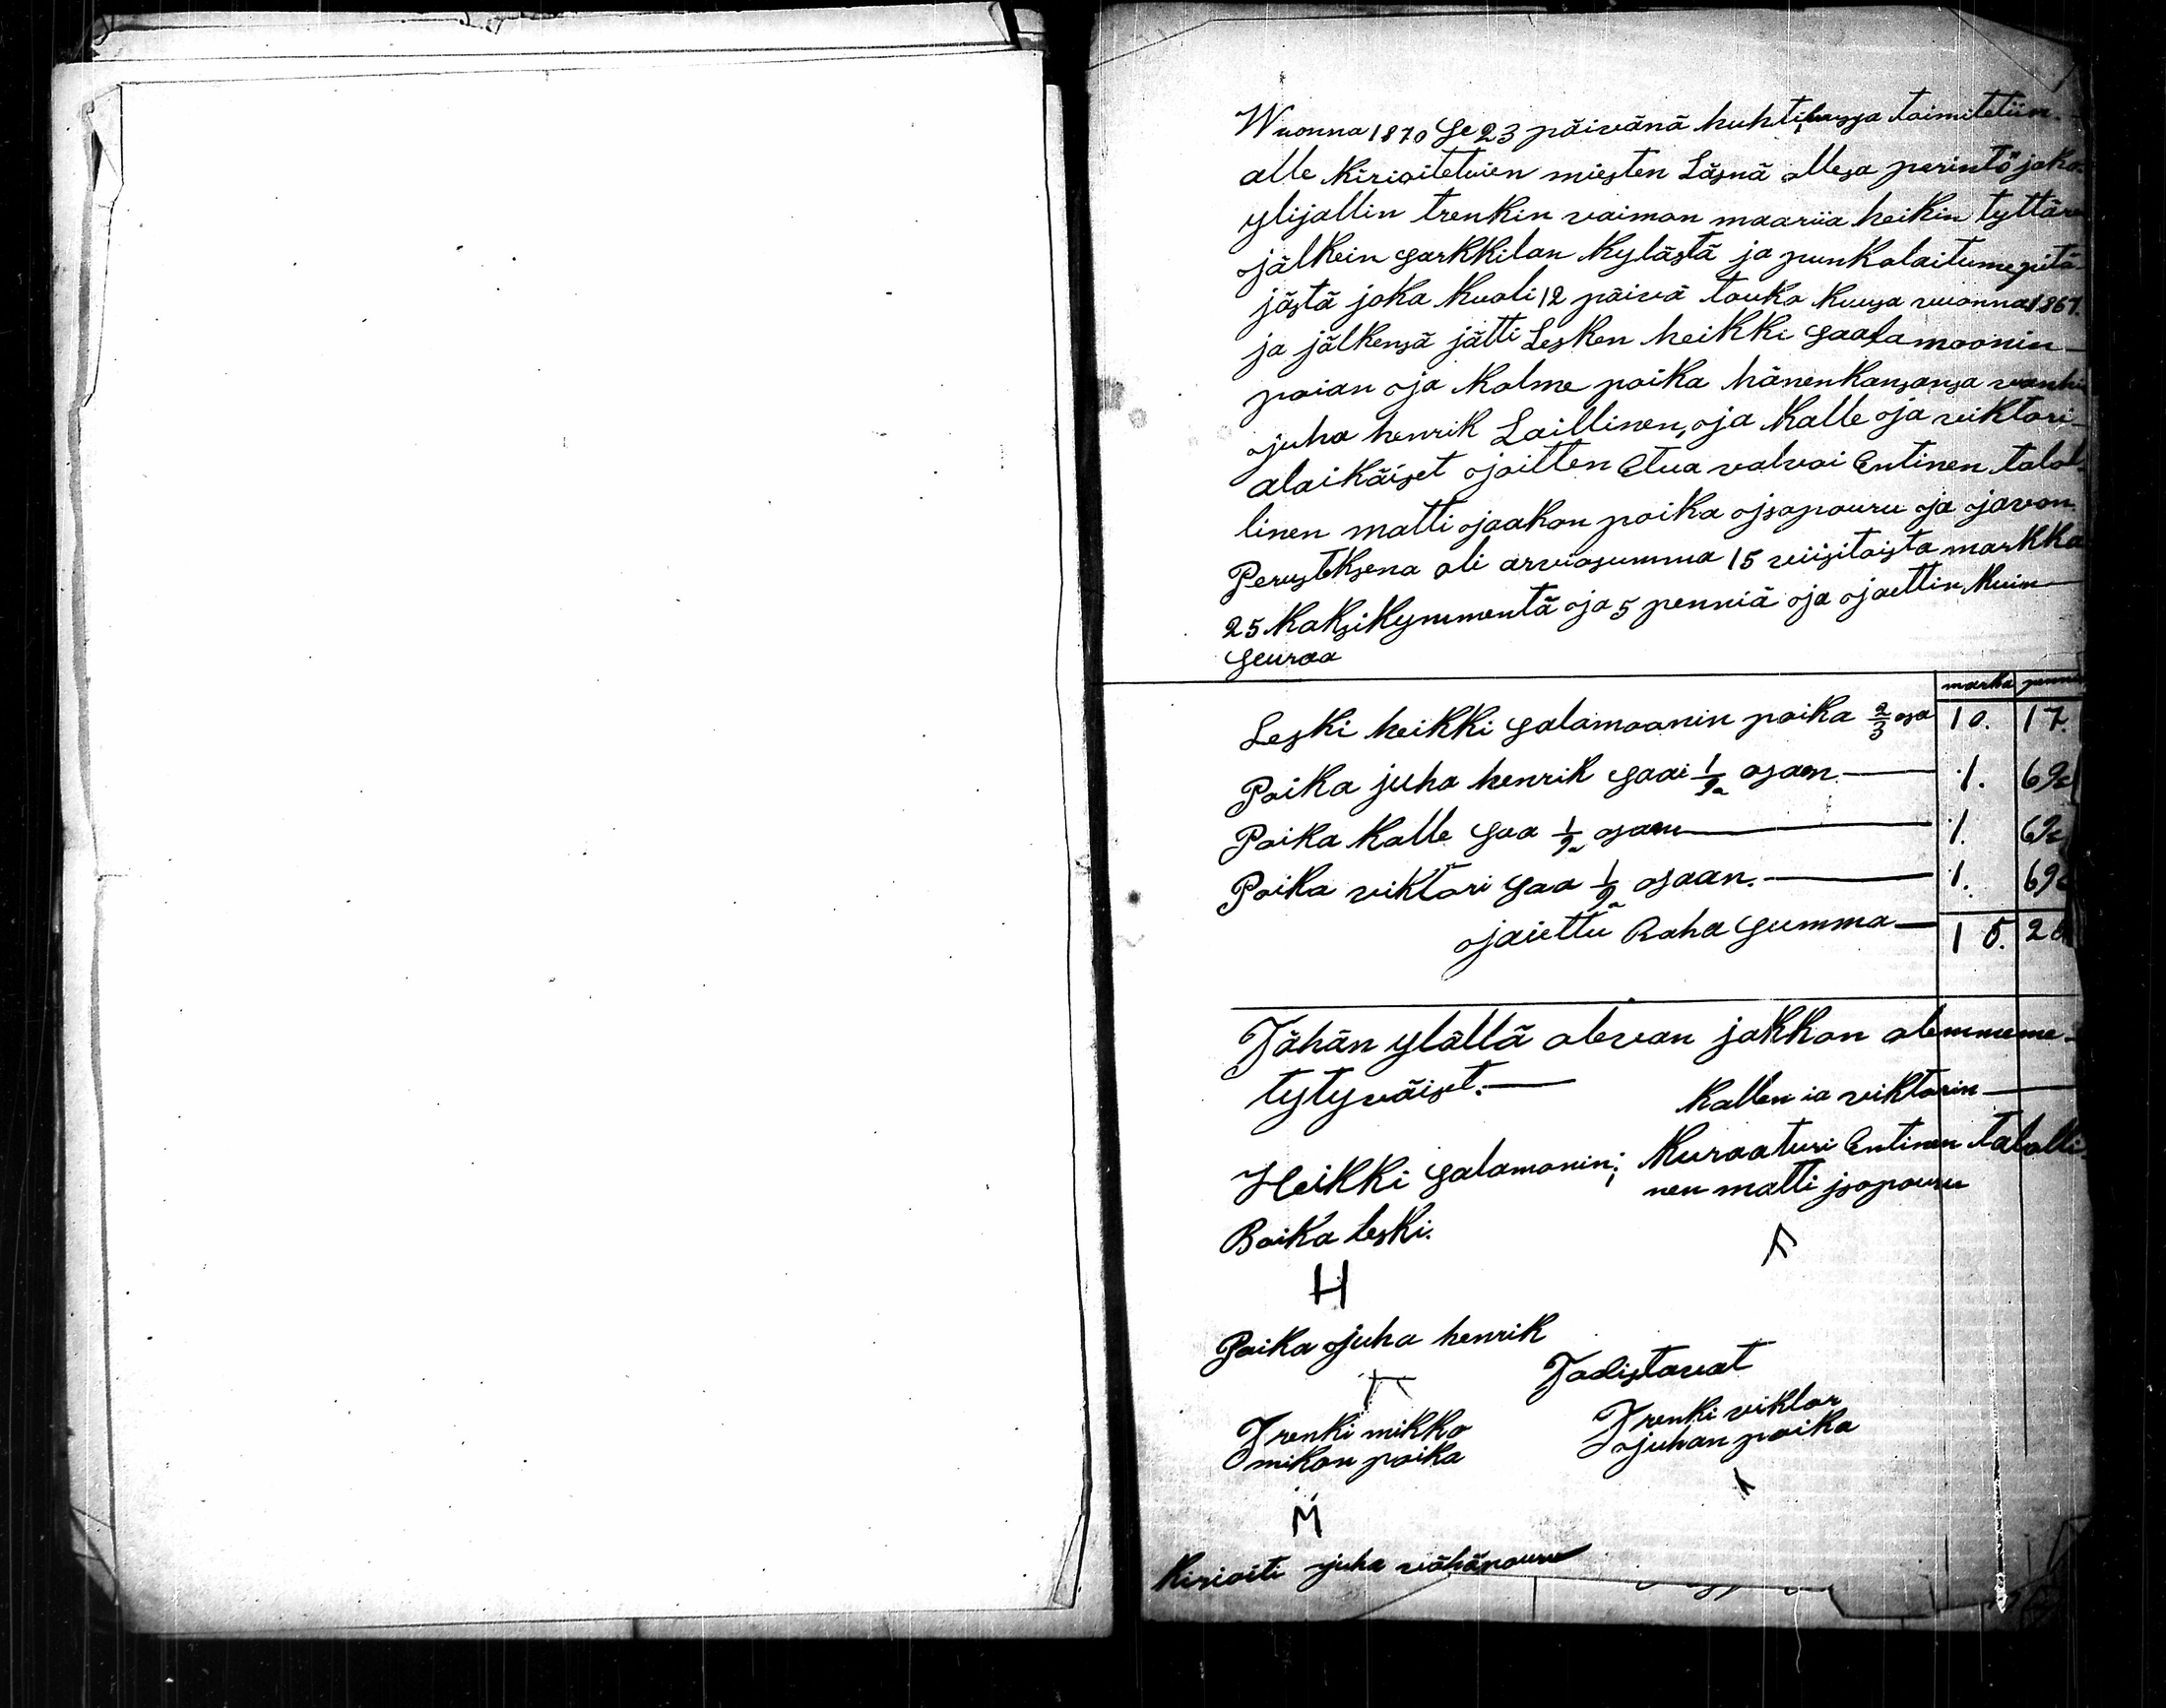 Wuonna 1870 Se 23 päivänä huhtikuusa toimitetiin
alle kirioitetuien miesten Läsnä ollesa perintö jako
ylijallin trenkin vaimon maariia heikin tyttären
jälkein sarkkilan kylästä ja punkalaitumepitä
jästä joka kuoli 12 päivä touko kuusa vuonna 1867.
ja jälkensä jätti Lesken heikki saalamoonin
poian ja kolme poika hänenkansansa vanhi
juha henrik Laillinen, ja kalle ja viktori
alaikäiset joitten Etua valvoi Entinen talol
linen matti jaakon poika jsopouru ja javon
Perusteksena oli arviosumma 15 viisitoista markka
25 kaksikymmentä ja 5 penniä ja jaettin kuin
seuraa
marka penni
Leski heikki salamoonin poika 2/3 osa 10. 17.
Poika juha henrik saai 1/9 osaan 1. 69
Poika kalle saa 1/9 osaan 1. 69
Poika viktori saa 1/9 osaan. 1. 69
jaiettu Raha summa 15. 2
Tähän ylällä olevan jakkon olemmeme
tytyväiset.
Kallen ia viktorin
Heikki salamonin; Kuraaturi Entinen talolli
nen matti jsopouru
Boika leski.
H
Poika juha henrik
Todistavat
Trenki mikko Trenki viktor
mikon poika juhan poika
M
Kirioiti juha vähäpouru